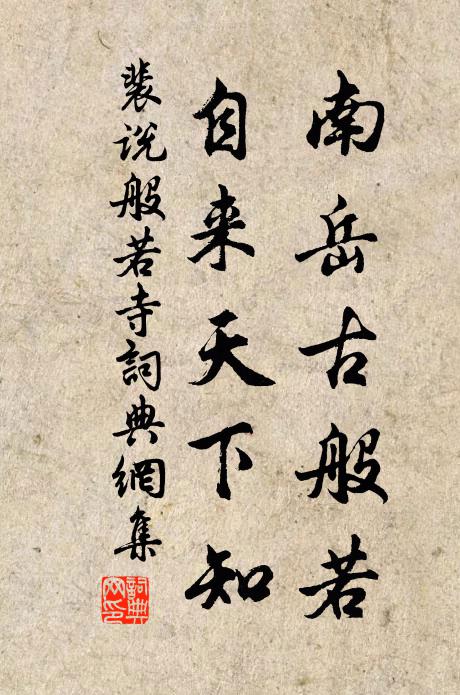 南岳古般若
自来天下知
裴说般若寺詞典網集
詞典網印